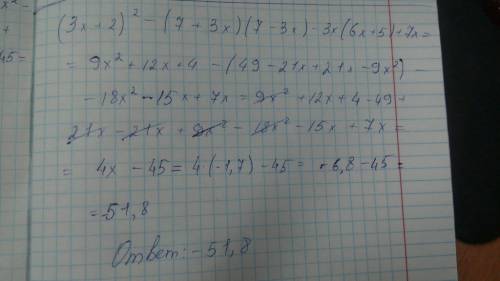 x² –
+
45 =
(3x + 2)² – (7 + 3x)(7 – 3x) – 3x(6x + 5) + 7x =
= 9x² + 12x + 4 – (49 – 21x + 21x – 9x²) –
– 18x² – 15x + 7x = 9x² + 12x + 4 – 49 +
21x – 21x + 9x² – 18x² – 15x + 7x =
= 4x – 45 = 4(–1,7) – 45 = –6,8 – 45 =
= –51,8
Ответ: –51,8